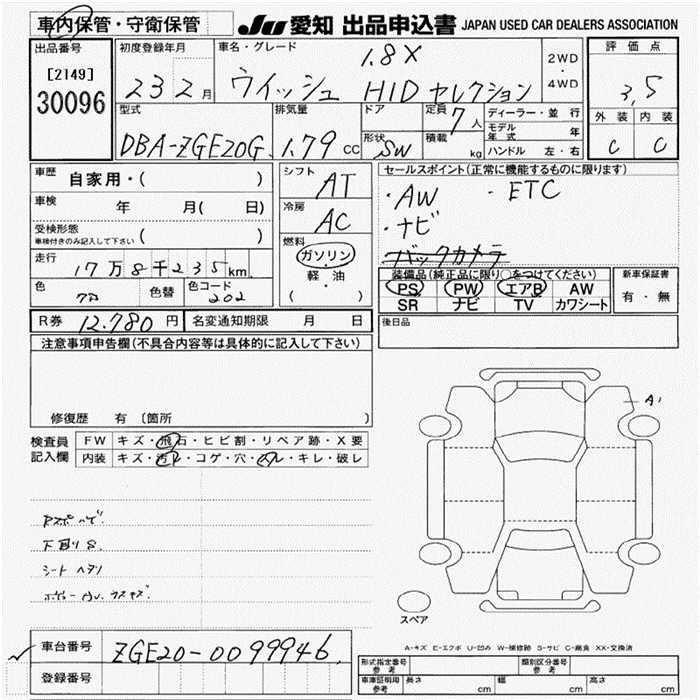 車内保管・守衛保管
JU 愛知 出品申込書 JAPAN USED CAR DEALERS ASSOCIATION
出品番号 初度登録年月 車名・グレード 1.8X 2WD・4WD 評価点
[2149]
30096
23 2月 ウィッシュ HID セレクション 3.5
型式 排気量 ドア 定員 7人 ディーラー・並行 外装 内装
DBA-ZGE20G 1.79cc 形状 SW 積載 kg モデル年式 年 C C
ハンドル 左・右
車歴 自家用・( )
シフト AT
セールスポイント(正常に機能するものに限ります)
・AW ・ETC
・ナビ
バックカメラ
車検 年 月( 日)
冷房 AC
受検形態 ( )
車検付きのみ記入して下さい
燃料 ガソリン・軽・油 ( )
走行 17万8千235km
装備品(純正品に限り○をつけてください) 新車保証書
PS PW エアB AW 有・無
SR ナビ TV カワシート
色 色替 色コード 202
後日品
R券 12.780円 名変通知期限 月 日
注意事項申告欄(不具合内容等は具体的に記入して下さい)
A1
修復歴 有〔箇所 〕
検査員記入欄 FW キズ・飛石・ヒビ割・リペア跡・X要
内装 キズ・汚レ・コゲ・穴・スレ・キレ・破レ
シート ヘタリ
スペア
A-キズ E-エクボ U-凹み W-補修跡 S-サビ C-腐食 XX-交換済
車台番号 ZGE20-0099946
登録番号
形式指定番号 参考 類別区分番号 参考
車庫証明用 参考 長さ cm 幅 cm 高さ cm